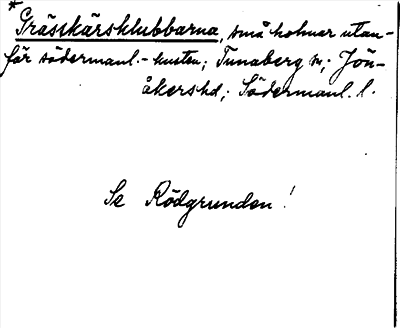 * Grässkärsklubbarna, små holmar utan-
för södermanl.-kusten; Tunaberg sn; Jön-
åkers hd; Södermanl. l.
Se Rödgrunden!